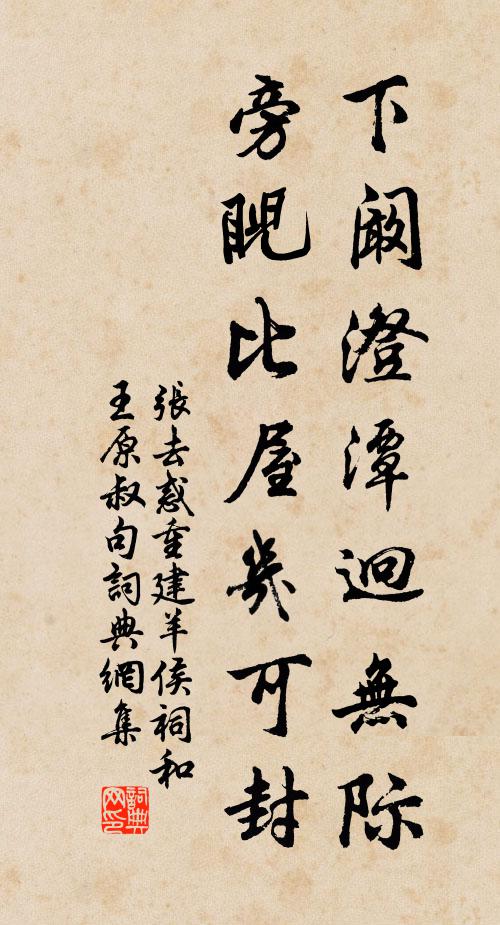 下阚澄潭迥無际
旁睨比屋幾可封
張去惑重建羊侯祠和
王原叔句詞典網集
詞典网印